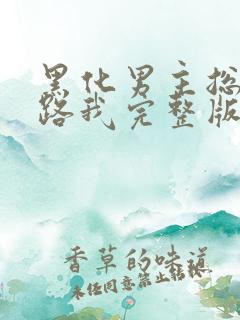 黑化男主撩
路我完整版
香草的味道
未经同意禁止转载